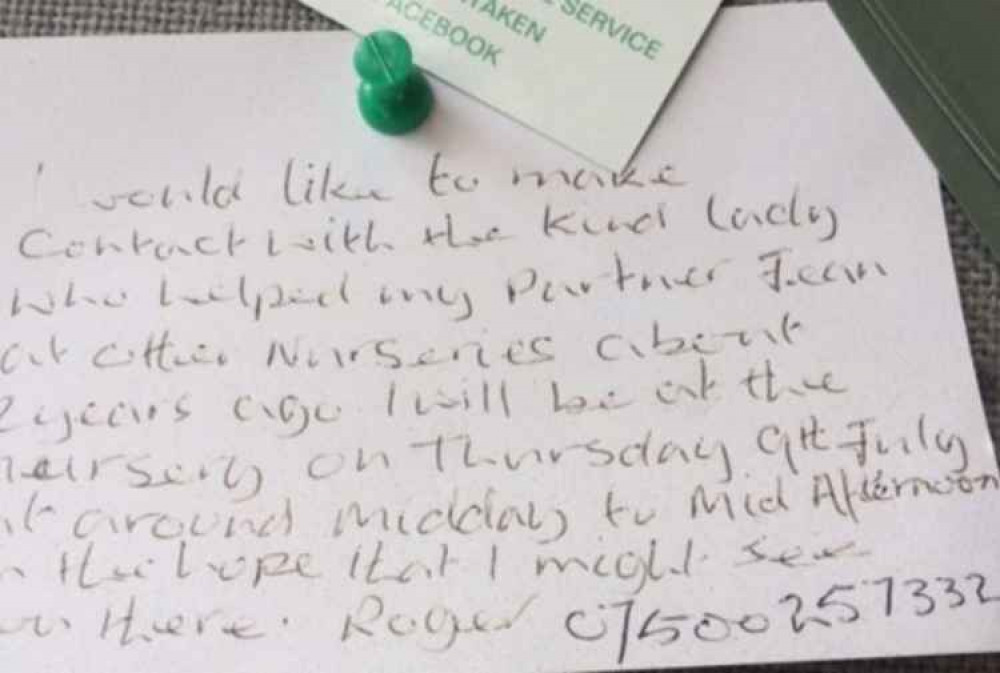 SERVICE
TAKEN
FACEBOOK
I would like to make
Contact with the Kind lady
who helped my Partner Jean
at Otter Nurseries about
2 years ago I will be at the
nursery on Thursday 9th July
at around midday to Mid Afternoon
in the hope that I might see
you there. Roger 07500257332